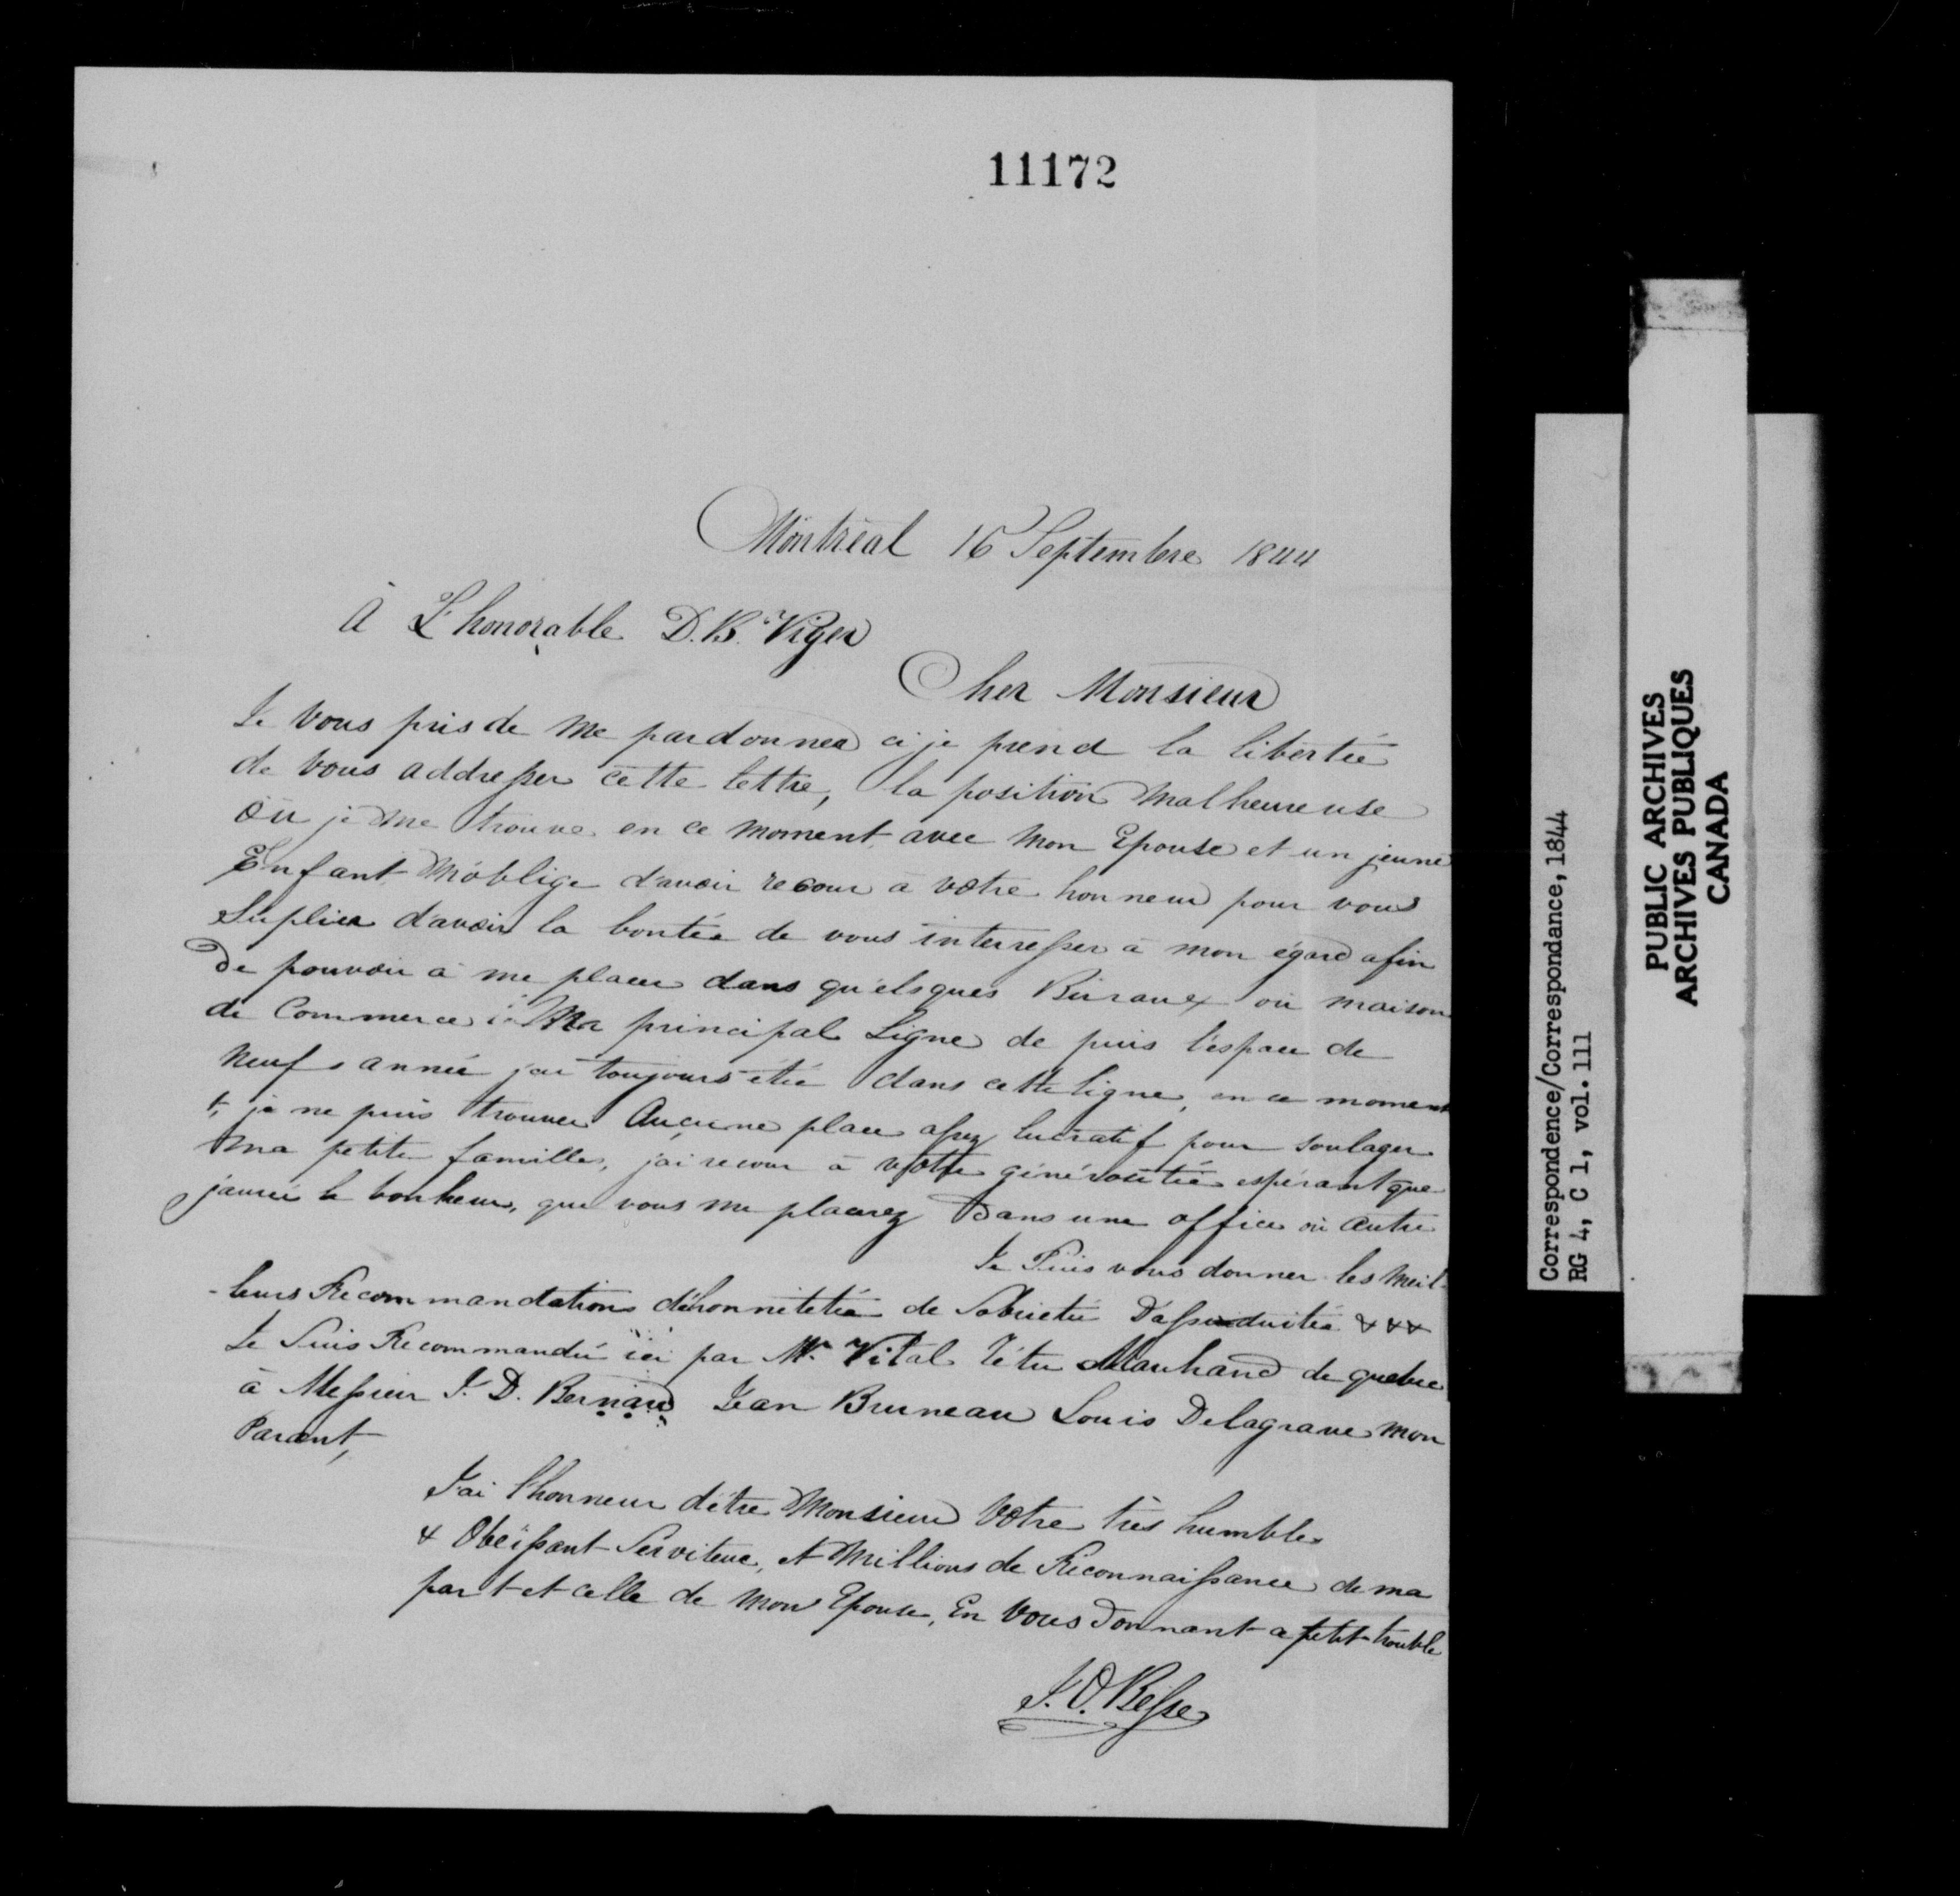 11172
Montréal 16 Septembre 1844
À L'honorable D.B. Viger
Cher Monsieur
Je vous pris de me pardonner ci je prend la libertée
de vous addresser cette lettre, la position malheureuse
où je me trouve en ce moment avec mon Epouse et un jeune
Enfant m'oblige d'avoir recour à votre honneur pour vous
suplier d'avoir la bontée de vous interresser à mon égard afin
De pouvoir à me placer dans quelsques Buraux où maison
de Commerce Ma principal Ligne de puis l'espace de
neufs année j'ai toujours étée dans cette ligne, en ce momen
t, je ne puis trouver Aucune place assez lucratif pour soulager
ma petite famille, j'ai recour à votre générositée espérant que
j'aurée le bonheur, que vous me placerez Dans une office où autre
Je Puis vous donner les meil-
-leurs Recommandations d'éhonnêtetée de Sobrietée D'assiduitée &&&
Je Suis Recommandée ici par Mr. Vital Têtu Marchand de quebec
à Messieur J. D. Bernard Jean Bruneau Louis Delagrave mon
Parent,
J'ai l'honneur d'être Monsieur Votre très humble
& Obéissant Serviteur, et Millions de Reconnaissance de ma
part et celle de mon Epouse, En Vous donnant a petit trouble
J. O. Besse
Correspondence/Correspondance, 1844
RG 4, C 1, vol. 111
PUBLIC ARCHIVES
ARCHIVES PUBLIQUES
CANADA